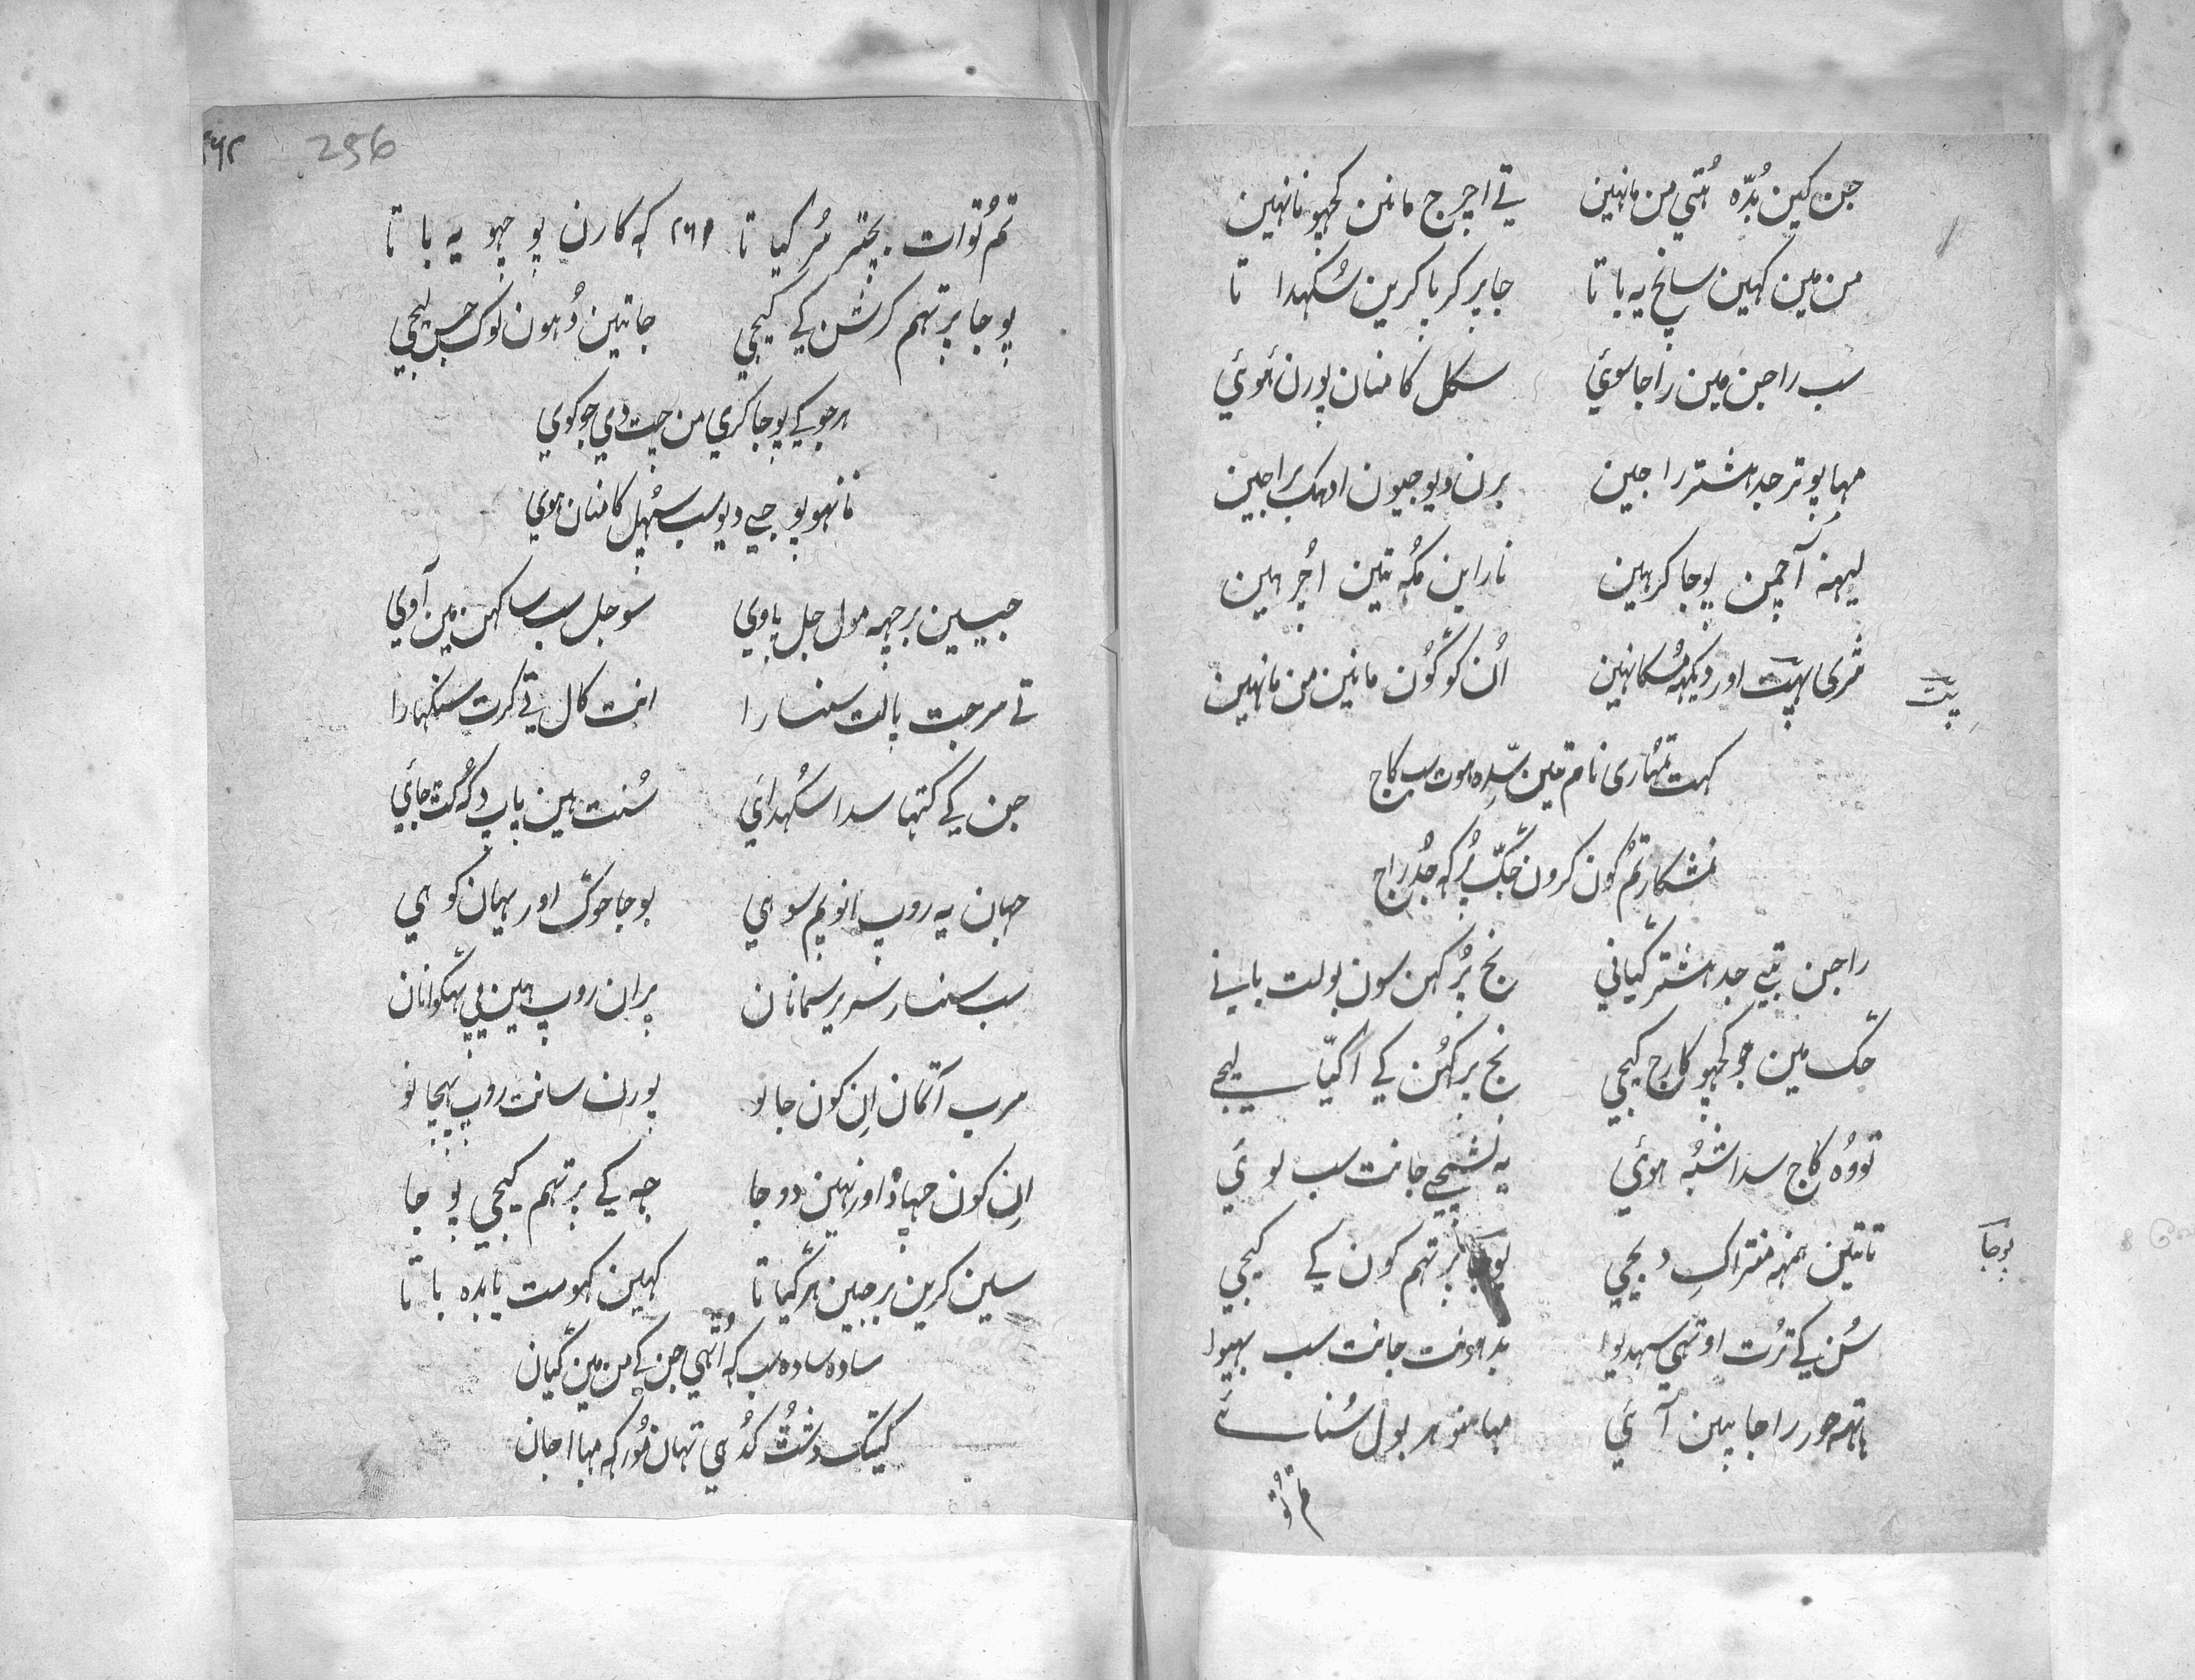 جن کین بُدّہ ہُتی من مانہین تے اچرج مانن کچہو نانہین
من مین کہین سانچ یہ باتا جا پر کرپا کرین سُکہداتا
سب راجن مین راجا سوئي سکل کامنان پورن ہوئي
مہا پوتر جدہشتر راجین برن دیو جیون ادہک براجین
لیہنہ آچمن پوجا کرہین ناراین مُکہ تین اُچرہین
اور دیکہہ مُسکانہین اُن کو گُون مانین من مانہین
پیت
کہت تمہاری نام تین سِدہ ہوت سب کاج
نمشکار تُم کون کرون جگ پُرکہ جُدراج
راجن تبے جدہشتر گیاني نج پُرکہن سون بولت بانے
جگ مین جو کچہو کارج کیجي نج پرکہُن کے اگیّا لیجے
تو وُہ کاج سدا شُبہ ہوئي یہ نشچے جانت سب لوئي
تاتین ہمنہہ منتر اکِ دیجي پوجا پرتہم کون کے کیجي
پوجا
سُن کے تُرت اوتہي سہدیوا بدہونت جانت سب بہیوا
ہاتہہ جور راجا پین آئي مہا منوہر بول سُنائے
تم تُو
256
۲۶۲
تُم تُو ات بچتر سُر گیاتا ۲۶۱ کہ کارن پوچہو یہ باتا
پوجا پرتہم کرشن کے کیجي جاتین دُہون لوک جس لیجي
ہرجو کے پوجا کري من چت دي جو کوي
مانہو پوجیے دیو سب سپہل کامنان ہوي
جیسین برچہہ مول جل پاوي سو جل سب ساکہن مین آوي
تے سرجت پالت سنسارا انت کال تے کرت سنگہارا
جن کے کتہا سدا سُکہدائي سُنت ہین پاپ دُکہ کٹ جائي
جہان یہ روپ انوپم سوہي پوجا جوگ اور یہان کو ہي
سب سنسار سریر سمانان پران روپ ہین یي بہگوانان
سرب آتمان اِن کون جانو پورن سانت روپ پہچانو
اِن کون چہاڈ اور نہین دوجا جہ کے پرتہم کیجي پوجا
سین کرین برجین ہر گیاتا کہین کہو مت یا بدہ باتا
سادہ سادہ سب کہ اُٹہي جن کے من مین گیان
کیتک دشٹ کُدہي تہان مُورکہ مہا اجان